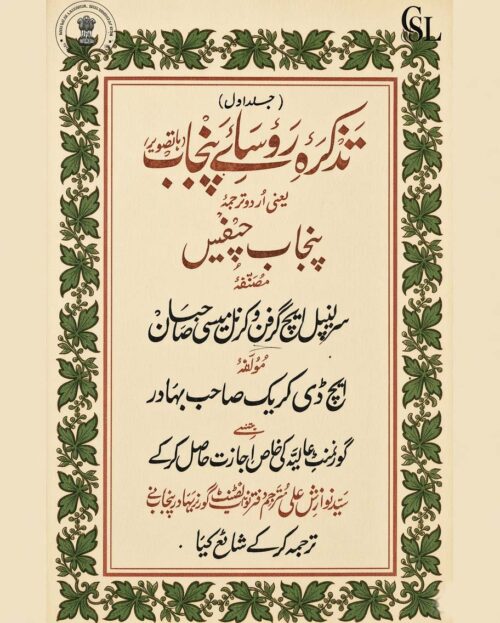 CSL
(جلد اول)
تذکرۂ رؤسائے پنجاب (باتصویر)
یعنی اُردو ترجمۂ
پنجاب چیفس
مصنفۂ
سر لیپل ایچ گرفن و کرنل میسی صاحبان
مؤلفۂ
ایچ ڈی کریک صاحب بہادر
جسے
گورنمنٹ عالیہ کی خاص اجازت حاصل کرکے
سید نوازش علی مترجم دفتر نواب لفٹنٹ گورنر بہادر پنجاب نے
ترجمہ کرکے شائع کیا۔